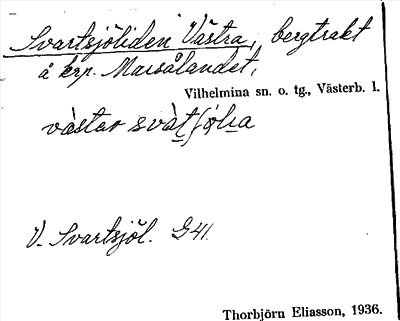 Svartsjöliden Västra, bergtrakt
å krp. Marsålandet,
Vilhelmina sn. o. tg., Västerb. l.
V. Svartsjöl. G 41.
Thorbjörn Eliasson, 1936.